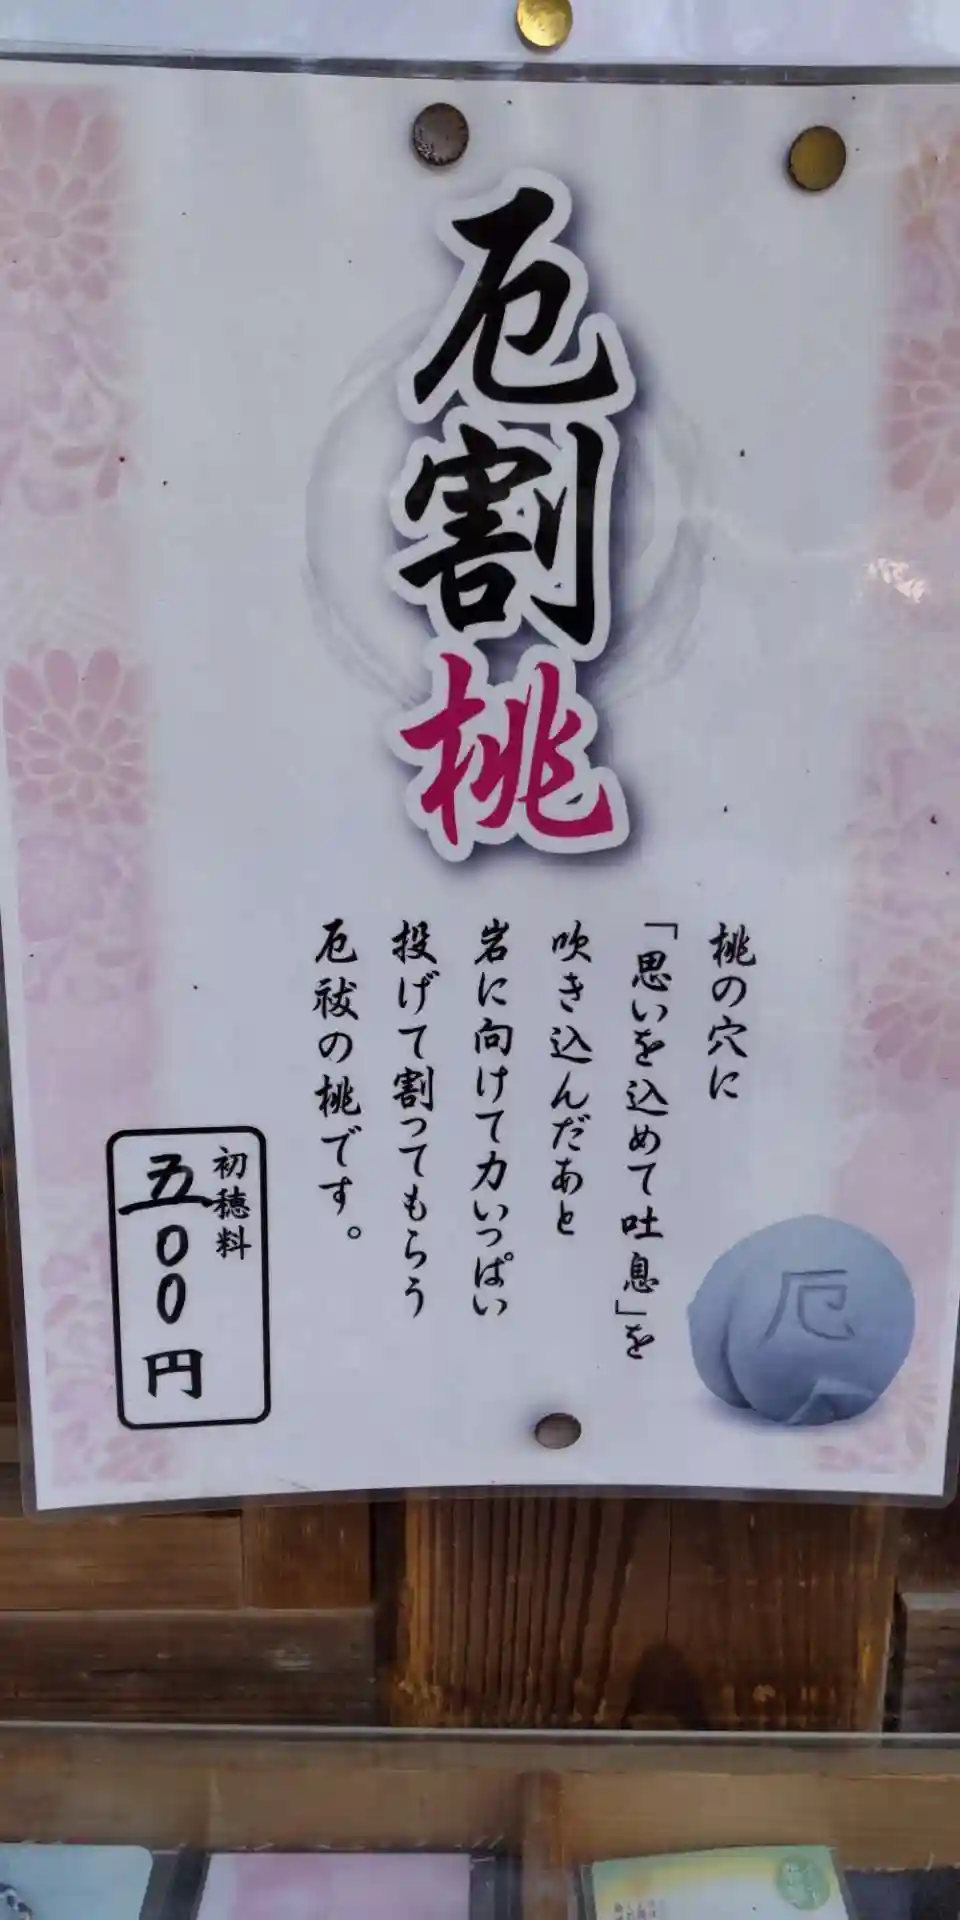 厄割桃
桃の穴に
「思いを込めて吐息」を
吹き込んだあと
岩に向けて力いっぱい
投げて割ってもらう
厄祓の桃です。
初穂料
五00円
厄